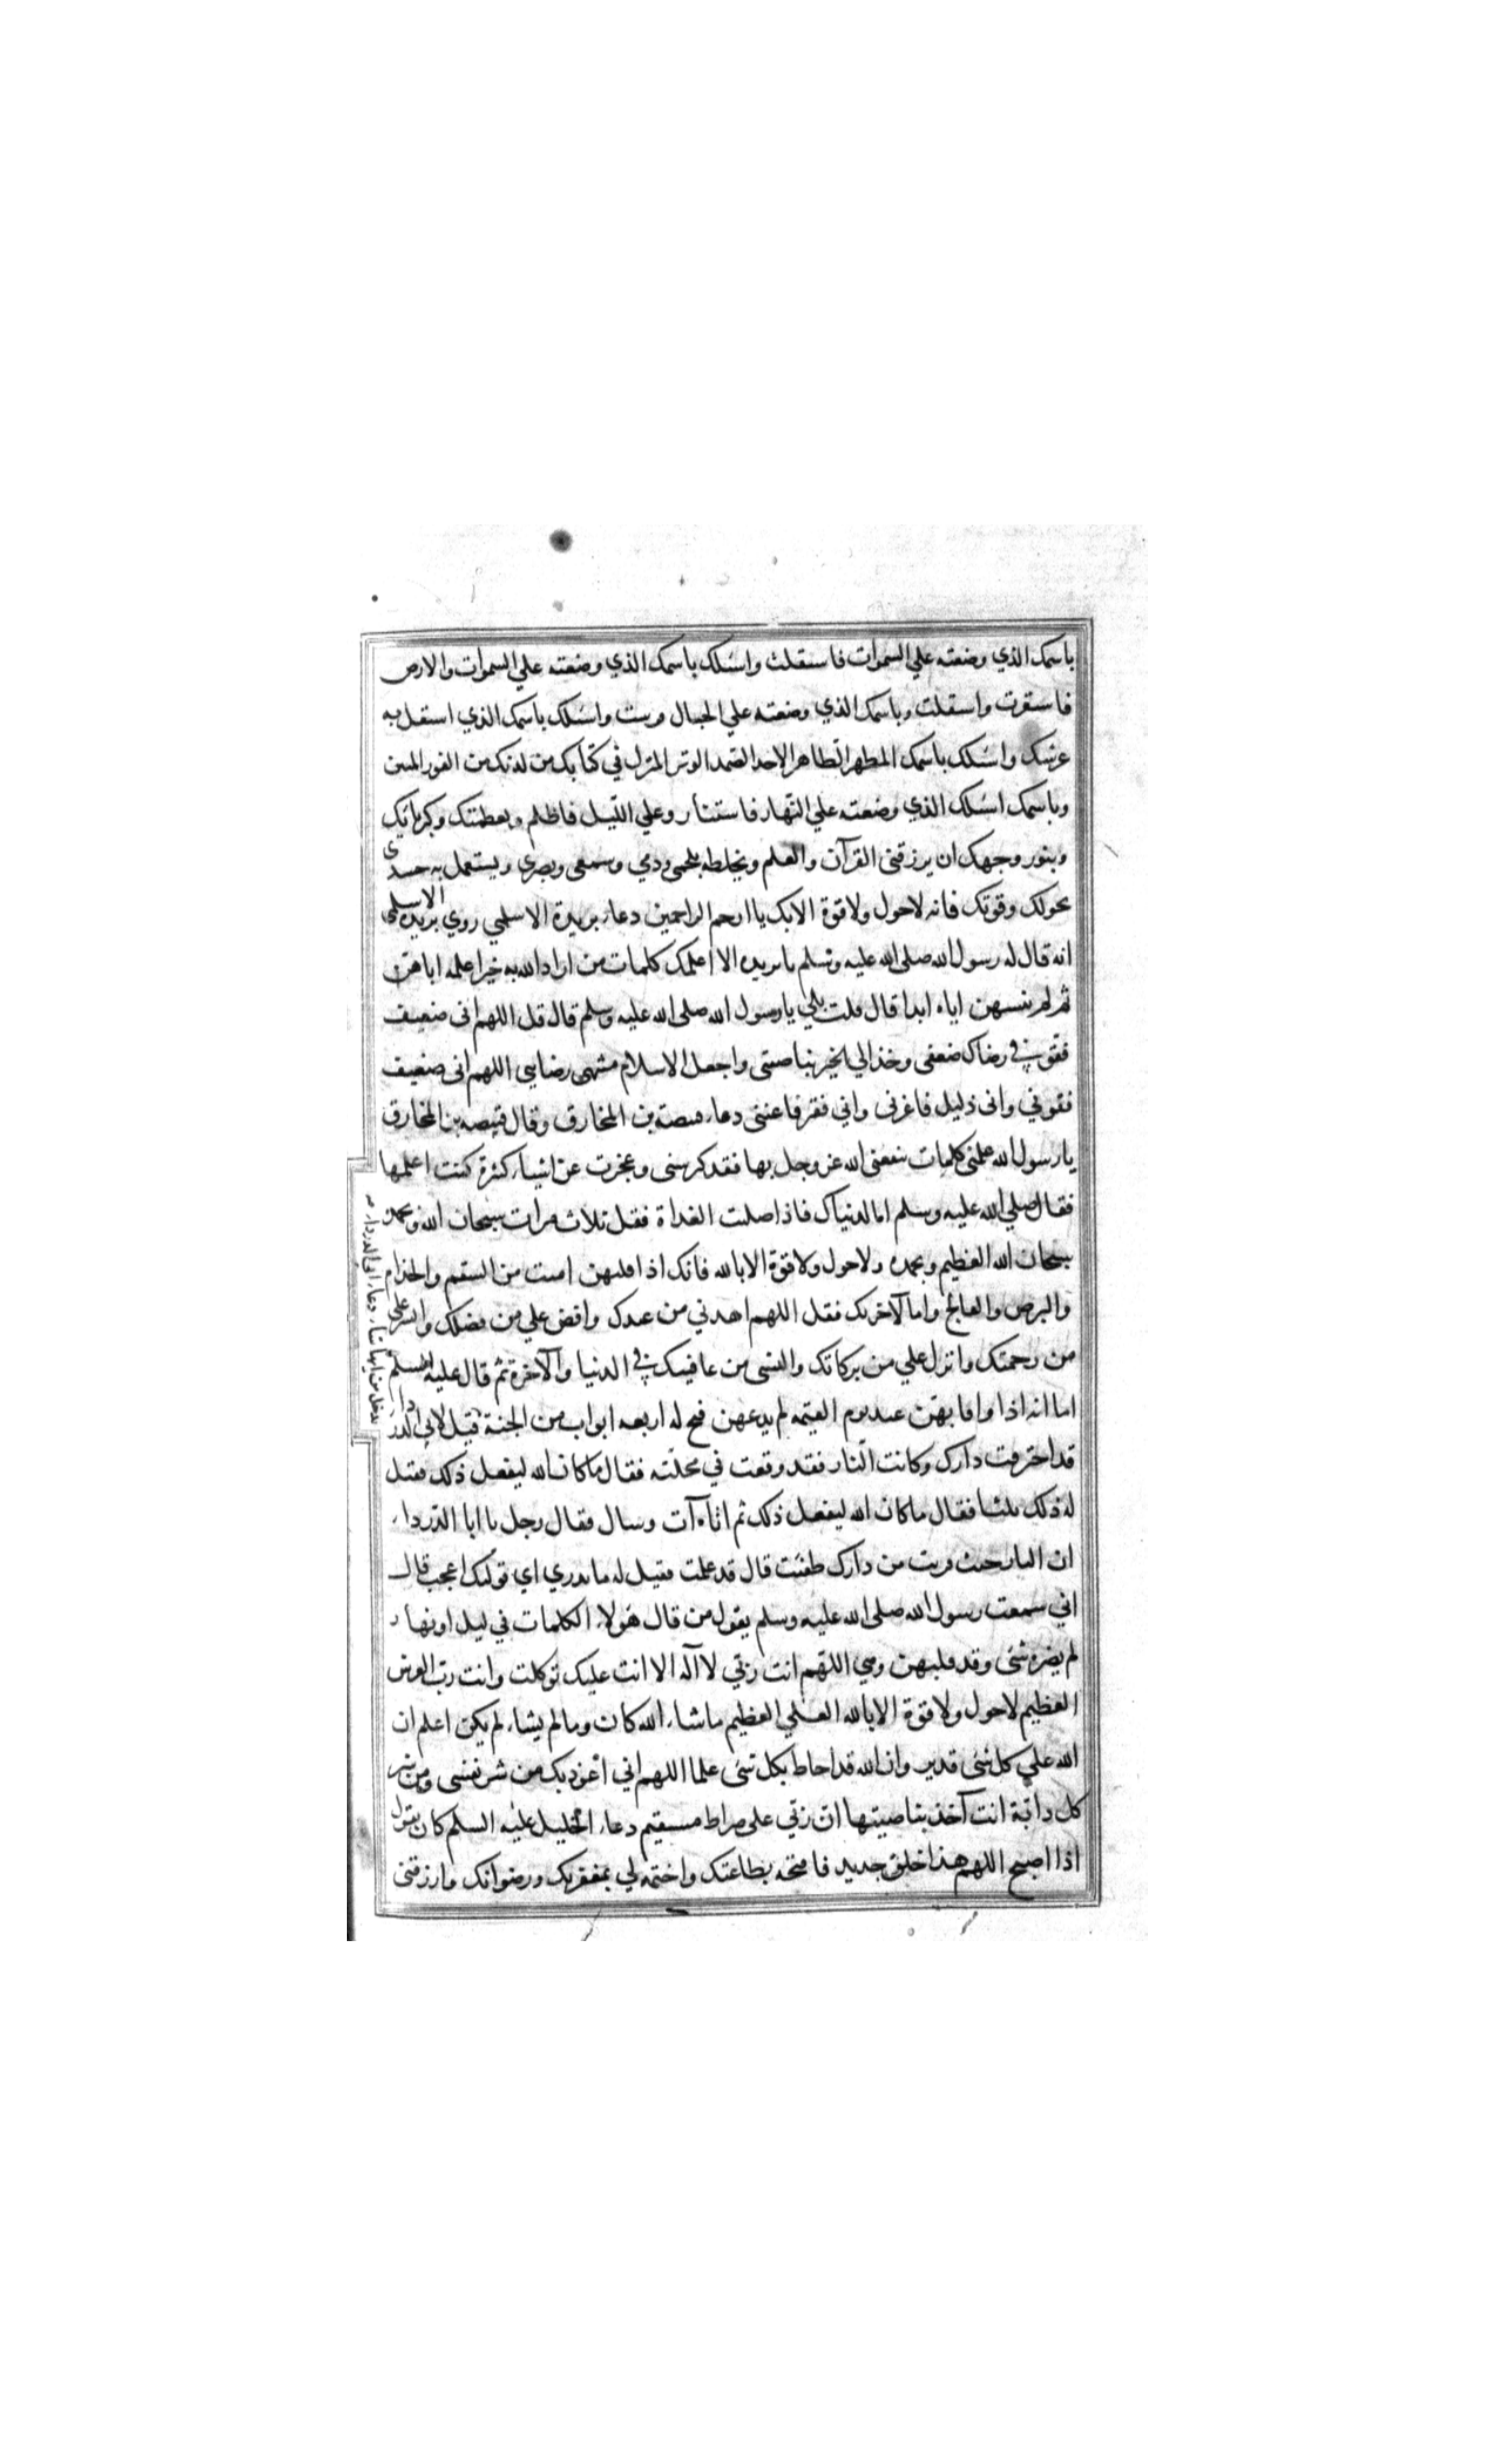 باسمك الذي وضعته علي السموات فاستقلت واسئلك باسمك الذي وضعته علي السموات والارض
فاستقرت واستقلت وباسمك الذي وضعته علي الجبال فرست واسئلك باسمك الذي استقل به
عرشك واسئلك باسمك المطهر الطاهر الاحد الصمد الوتر المنزل في كتابك من لدنك من النور المبين
وباسمك اسئلك الذي وضعته علي النهار فاستنار وعلي الليل فاظلم وبعظمتك وكبريائك
وبنور وجهك ان يرزقني القرآن والعلم ويخلطه بلحمي ودمي وسمعي وبصري ويستعمل به جسدي
بحولك وقوتك فانه لاحول ولا قوة الا بك يا ارحم الراحمين دعاء بريدة الاسلمي روي بريدة الاسلمي
انه قال له رسول الله صلى الله عليه وسلم يا بريده الا اعلمك كلمات من اراد الله به خيرا علمه اياهن
ثم لم ينسهن اياه ابدا قال قلت بلي يا رسول الله صلى الله عليه وسلم قال قل اللهم اني ضعيف
فقو في رضاك ضعفي وخذ الي الخير بناصيتي واجعل الاسلام منتهى رضايي اللهم اني ضعيف
فقوني واني ذليل فاعزني واني فقير فاغنني دعاء قبيصة بن المخارق وقال قبيصه بن المخارق
يا رسول الله علمني كلمات ينفعني الله عز وجل بها فقد كبر سني وعجزت عن اشياء كثيرة كنت اعلمها
فقال صلي الله عليه وسلم اما لدنياك فاذا صليت الغداة فقل ثلاث مرات سبحان الله وبحمده
سبحان الله العظيم وبحمده ولا حول ولا قوة الا بالله فانك اذا قلتهن امنت من السقم والجذام
والبرص والفالج واما لآخرتك فقل اللهم اهدني من عندك وافض علي من فضلك وانشر علي
من رحمتك وانزل علي من بركاتك والبسني من عافيتك في الدنيا والآخرة ثم قال عليه السلم
اما انه اذا وافا بهن عبد يوم القيمه لم يدعهن فتح له اربعه ابواب من الجنة قيل لابي الدرداء
قد احترقت دارك وكانت النار فقد وقعت في محلته فقال ما كان الله ليفعل ذلك فقيل
له ذلك ثلثا فقال ما كان الله ليفعل ذلك ثم اتاه آت وسال فقال رجل يا ابا الدرداء
ان النار حيث قربت من دارك طفئت قال قد علمت فقيل له ما ندري اي قوليك اعجب قال
اني سمعت رسول الله صلى الله عليه وسلم يقول من قال هولاء الكلمات في ليل او نهار
لم يضره شئ وقد قلتهن وهي اللهم انت ربي لا آله الا انت عليك توكلت وانت رب العرش
العظيم لا حول ولا قوة الا بالله العلي العظيم ماشاء الله كان وما لم يشاء لم يكن اعلم ان
الله علي كل شئ قدير وان الله قد احاط بكل شئ علما اللهم اني اعوذ بك من شر نفسي ومن شر
كل دابة انت آخذ بناصيتها ان ربي على صراط مستقيم دعاء الخليل عليه السلم كان يقول
اذا اصبح اللهم هذا خلق جديد فافتحه بطاعتك واختمه لي بمغفرتك ورضوانك وارزقني
يدخل من ايها شاء دعاء ابي الدرداء